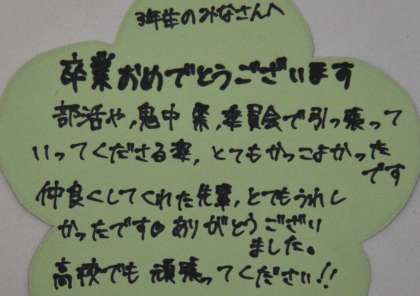 3年生のみなさんへ
卒業おめでとうございます
部活や,鬼中 祭,委員会で引っ張って
いってくださる姿,とてもかっこよかった
です
仲良くしてくれた先輩,とてもうれし
かったです♥ありがとうござい
ました。
高校でも頑張ってください!!